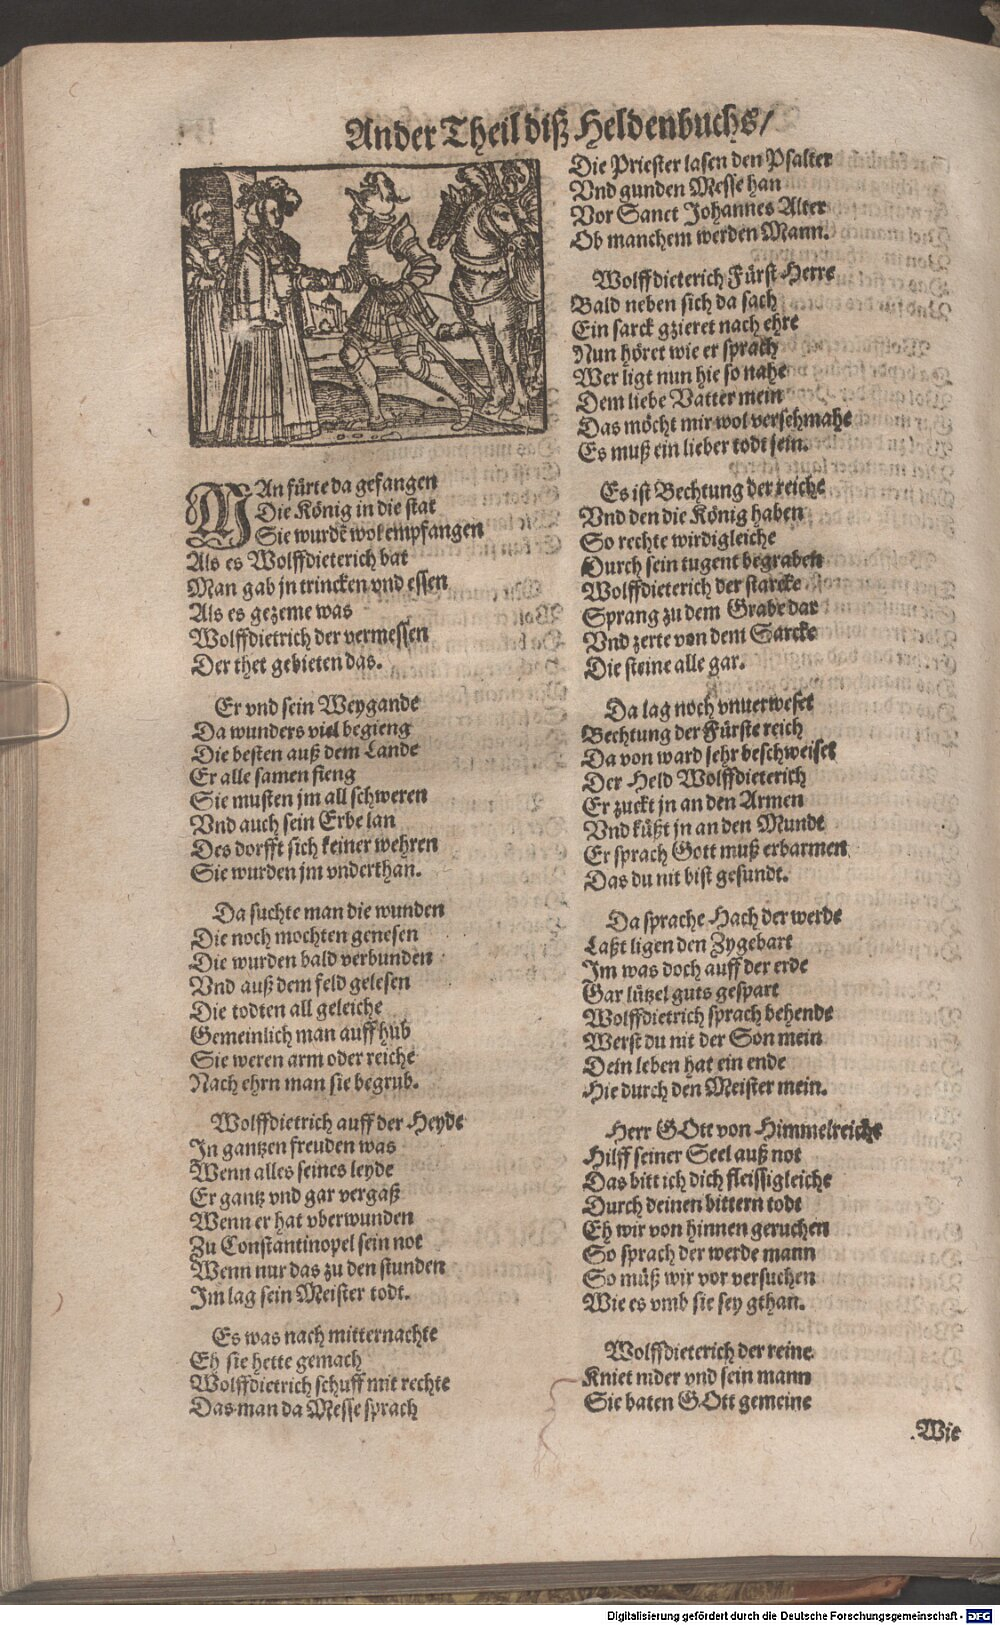 Ander Theil diß Heldenbuchs/
MAn fürte da gefangen
Die König in die stat
Sie wurdẽ wol empfangen
Als es Wolffdieterich bat
Man gab jn trincken vnd essen
Als es gezeme was
Wolffdietrich der vermessen
Der thet gebieten das.
Er vnd sein Weygande
Da wunders viel begieng
Die besten auß dem Lande
Er alle samen fieng
Sie musten jm all schweren
Vnd auch sein Erbe lan
Des dorfft sich keiner wehren
Sie wurden jm vnderthan.
Da suchte man die wunden
Die noch mochten genesen
Die wurden bald verbunden
Vnd auß dem feld gelesen
Die todten all geleiche
Gemeinlich man auff hub
Sie weren arm oder reiche
Nach ehrn man sie begrub.
Wolffdietrich auff der Heyde
In gantzen freuden was
Wenn alles seines leyde
Er gantz vnd gar vergaß
Wenn er hat vberwunden
Zu Constantinopel sein not
Wenn nur das zu den stunden
Im lag sein Meister todt.
Es was nach mitternachte
Eh sie hette gemach
Wolffdietrich schuff mit rechte
Das man da Messe sprach
Die Priester lasen den Psalter
Vnd gunden Messe han
Vor Sanct Johannes Alter
Ob manchem werden Mann.
Wolffdieterich Fürst Herre
Bald neben sich da sach
Ein sarck gzieret nach ehre
Nun höret wie er sprach
Wer ligt nun hie so nahe
Dem liebe Vatter mein
Das möcht mir wol versehmahe
Es muß ein lieber todt sein.
Es ist Bechtung der reiche
Vnd den die König haben
So rechte wirdigleiche
Durch sein tugent begraben
Wolffdieterich der starcke
Sprang zu dem Grabe dar
Vnd zerte von dem Sarcke
Die steine alle gar.
Da lag noch vnuerweset
Bechtung der Fürste reich
Da von ward sehr beschweiset
Der Held Wolffdieterich
Er zuckt jn an den Armen
Vnd küßt jn an den Mundt
Er sprach Gott muß erbarmen
Das du nit bist gesundt.
Da sprache Hach der werde
Laßt ligen den Zygebart
Im was doch auff der erde
Gar lützel guts gespart
Wolffdietrich sprach behende
Werst du nit der Son mein
Dein leben hat ein ende
Hie durch den Meister mein.
Herr GOtt von Himmelreiche
Hilff seiner Seel auß not
Das bitt ich dich fleissigleiche
Durch deinen bittern todt
Eh wir von hinnen geruchen
So sprach der werde mann
So müß wir vor versuchen
Wie es vmb sie sey gthan.
Wolffdieterich der reine
Kniet nider vnd sein mann
Sie baten GOtt gemeine
Wie
Digitalisierung gefördert durch die Deutsche Forschungsgemeinschaft - DFG